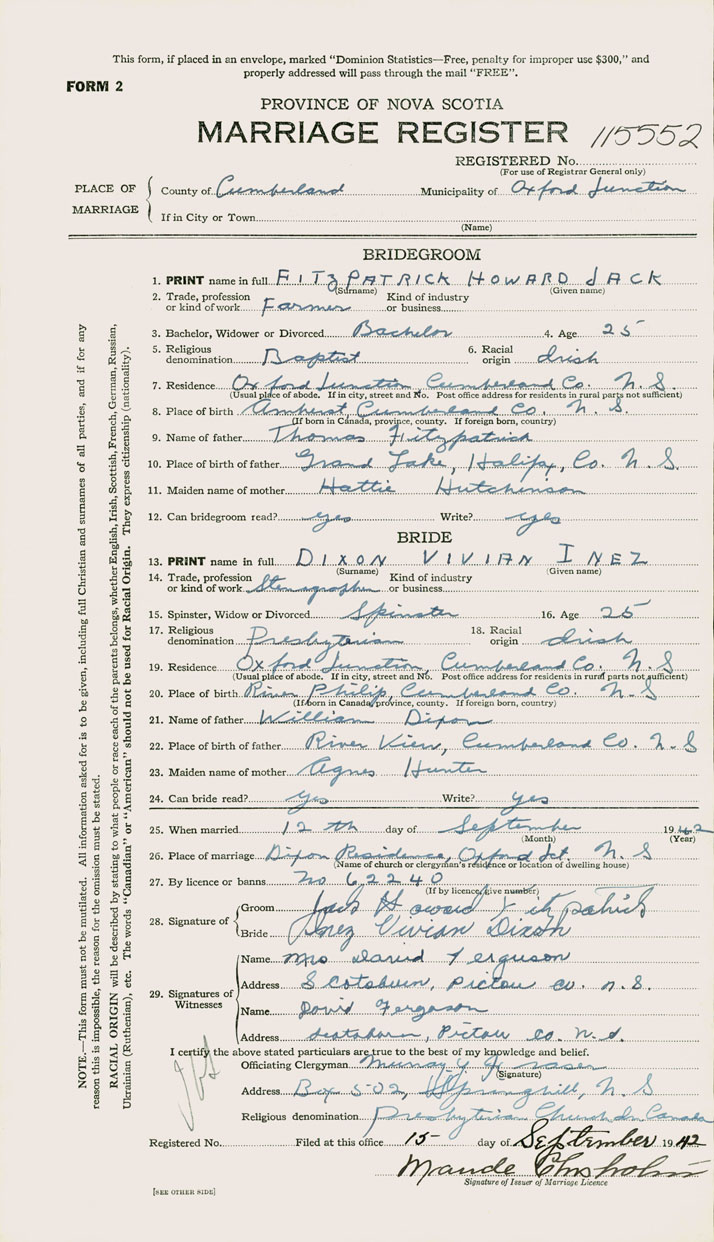 This form, if placed in an envelope, marked "Dominion Statistics—Free, penalty for improper use $300," and
properly addressed will pass through the mail "FREE".
FORM 2
PROVINCE OF NOVA SCOTIA
MARRIAGE REGISTER 115552
REGISTERED No.
(For use of Registrar General only)
PLACE OF MARRIAGE
County of Cumberland Municipality of Oxford Junction
If in City or Town
(Name)
BRIDEGROOM
1. PRINT name in full FITZPATRICK HOWARD JACK
(Surname) (Given name)
2. Trade, profession or kind of work Farmer Kind of industry or business
3. Bachelor, Widower or Divorced Bachelor 4. Age 25
5. Religious denomination Baptist 6. Racial origin Irish
7. Residence Oxford Junction Cumberland Co. N. S.
(Usual place of abode. If in city, street and No. Post office address for residents in rural parts not sufficient)
8. Place of birth Amherst Cumberland Co. N. S.
(If born in Canada, province, county. If foreign born, country)
9. Name of father Thomas Fitzpatrick
10. Place of birth of father Grand Lake, Halifx, Co. N. S.
11. Maiden name of mother Hattie Hutchinson
12. Can bridegroom read? yes Write? yes
BRIDE
13. PRINT name in full DIXON VIVIAN INEZ
(Surname) (Given name)
14. Trade, profession or kind of work Stenographer Kind of industry or business
15. Spinster, Widow or Divorced Spinster 16. Age 25
17. Religious denomination Presbyterian 18. Racial origin Irish
19. Residence Oxford Junction, Cumberland Co. N. S
(Usual place of abode. If in city, street and No. Post office address for residents in rural parts not sufficient)
20. Place of birth River Philip, Cumberland Co. N. S
(If born in Canada, province, county. If foreign born, country)
21. Name of father William Dixon
22. Place of birth of father River View, Cumberland Co. N. S
23. Maiden name of mother Agnes Hunter
24. Can bride read? yes Write? yes
25. When married 12 th day of September 1942
(Month) (Year)
26. Place of marriage Dixon Residence, Oxford Jct. N. S
(Name of church or clergyman's residence or location of dwelling house)
27. By licence or banns No 62240
(If by licence, give number)
28. Signature of
Groom Jack Howard Fitzpatrick
Bride Inez Vivian Dixon
29. Signatures of Witnesses
Name Mrs David Ferguson
Address Scotsburn, Pictou Co. N. S.
Name David Ferguson
Address Scotsburn, Pictou Co. N. S.
I certify the above stated particulars are true to the best of my knowledge and belief.
Officiating Clergyman Murray Y. Fraser
(Signature)
Address Box 502, Springhill, N. S
Religious denomination Presbyterian Church In Canada
Registered No. Filed at this office 15 day of September 1942
Maude Chisholm
Signature of Issuer of Marriage Licence
[SEE OTHER SIDE]
NOTE.—This form must not be mutilated. All information asked for is to be given, including full Christian and surnames of all parties, and if for any
reason this is impossible, the reason for the omission must be stated.
RACIAL ORIGIN will be described by stating to what people or race each of the parents belongs, whether English, Irish, Scottish, French, German, Russian,
Ukrainian (Ruthenian), etc. The words "Canadian" or "American" should not be used for Racial Origin. They express citizenship (nationality).